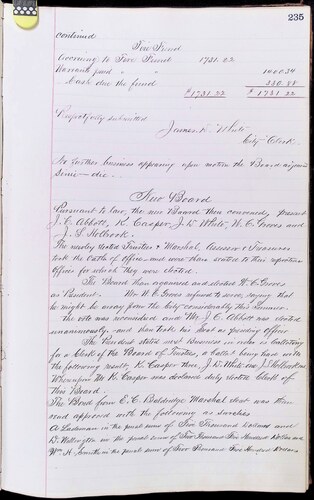 235
continued
Fire Fund
Accruing to Fire Fund 1731.22
Warrants paid " " 1400.34
Cash due the fund 330.88
$1731.22 $1731.22
Respectfully submitted
James W. White
City Clerk
No further business appearing upon motion the Board adjourned
Sine die.
New Board
Pursuant to law, the new Board then convened, present
J. C. Abbott, K. Casper, J. W. White, W. C. Groves and
J. S. Holbrook.
The newly elected Trustees & Marshal, Assessor & Treasurer
took the Oaths of office and were then seated to their respective
Offices for which they was elected.
The Board then organized and elected W. C. Groves
as President. Mr. W. C. Groves refused to serve, saying that
he might be away from the city considerably this Summer.
the vote was reconsidered and Mr. J. C. Abbott was elected
unanimously, and then took his seat as presiding officer
The President stated next Business in order is balloting
for a Clerk of the Board of Trustees, a ballot being had with
the following result; K. Casper three, J. W. White one, J. S. Holbrook one
Whereupon Mr. K. Casper was declared duly elected Clerk of
this Board.
The Bond from E. C. Baldridge Marshal elect was then
read approved with the following as sureties
A Lashman in the penal sum of Five Thousand Dollars and
D. Wellington in the penal sum of Two Thousand Five Hundred Dollars and
Wm H. Smith in the penal sum of Two Thousand Five Hundred Dollars